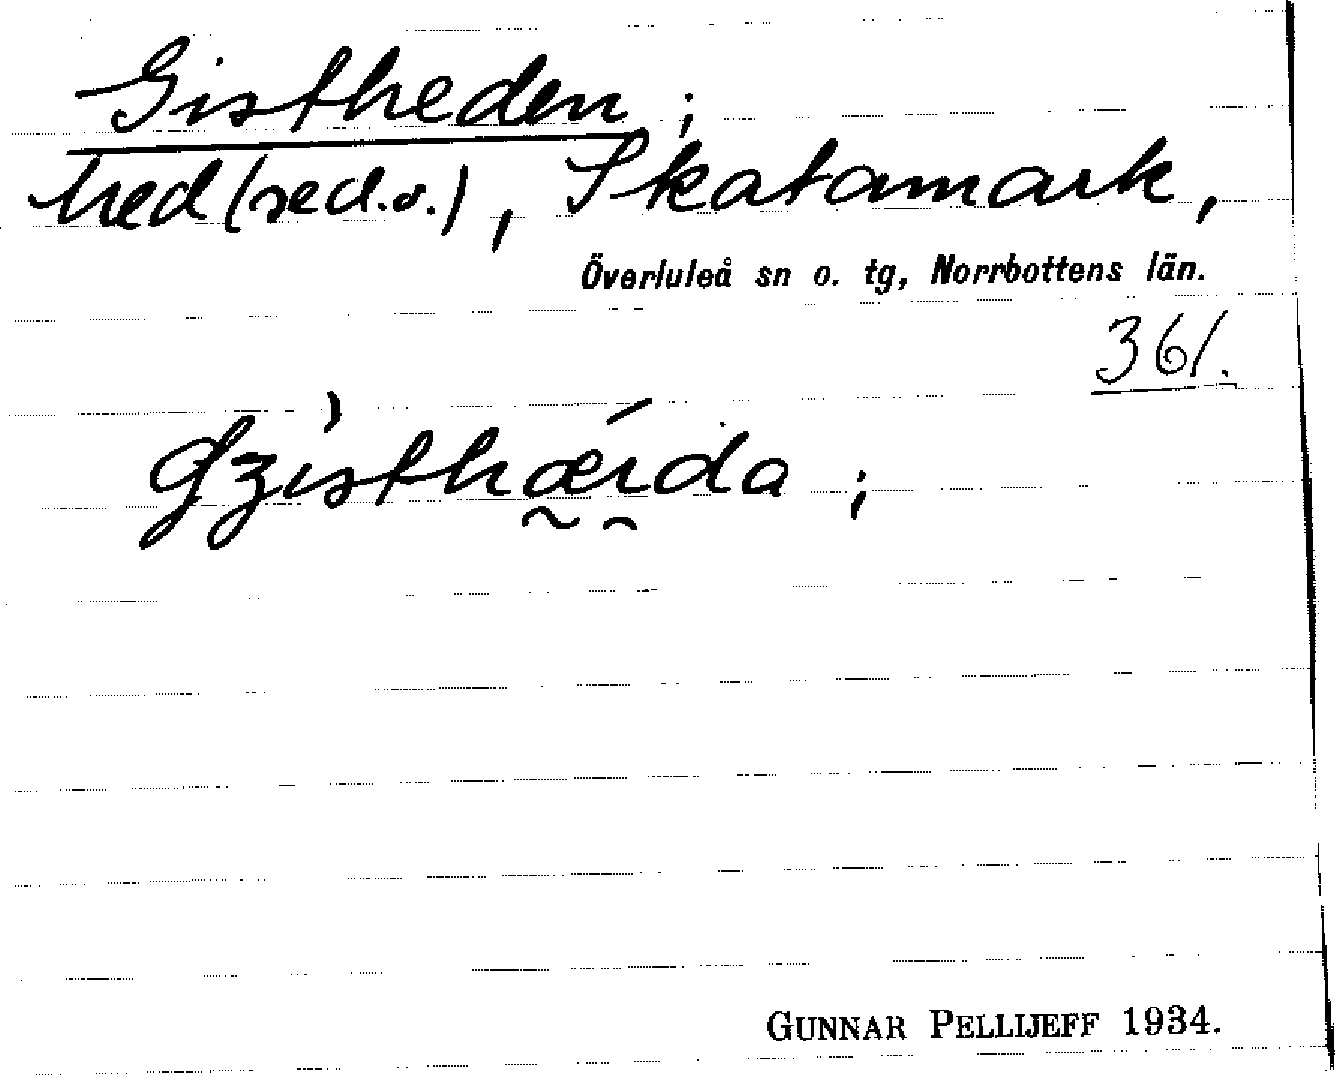 Gistheden;
hed (sed.o.), Skatamark,
Överluleå sn o. tg, Norrbottens län.
361.
GUNNAR PELLIJEFF 1934.